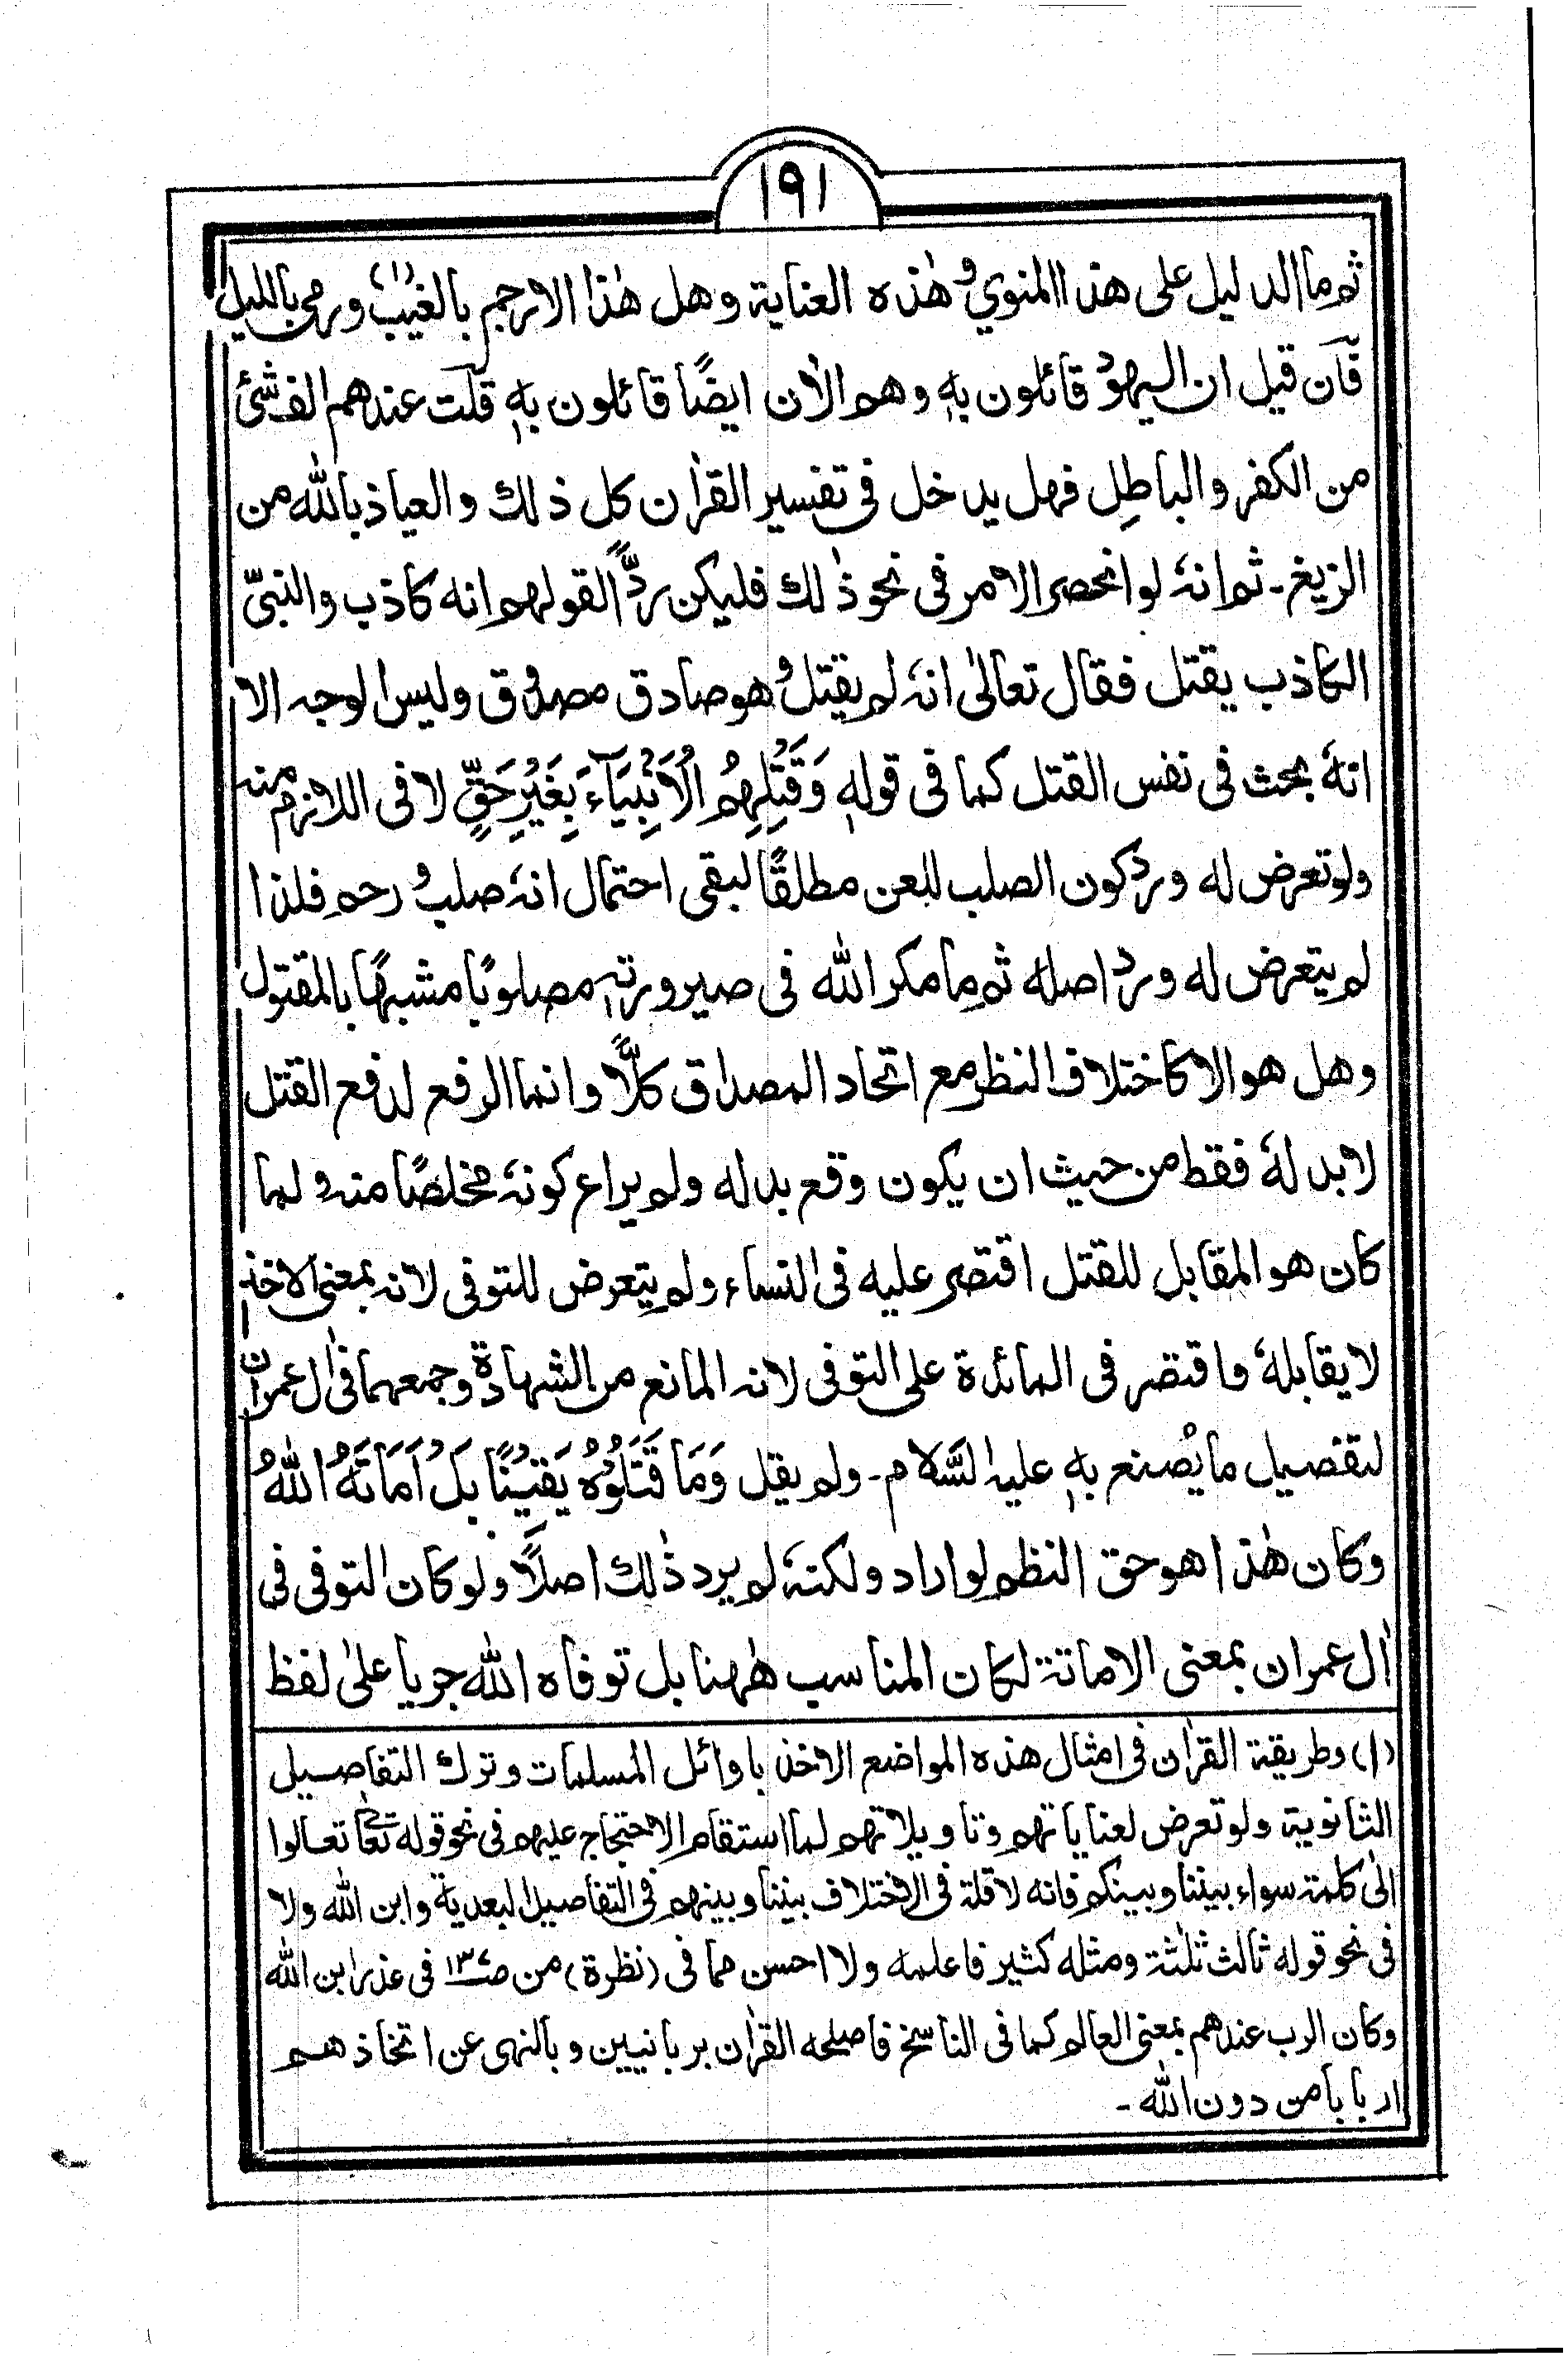 ١٩١
ثم ما الدليل على هذا المنوي و هٰذه العناية وهل هٰذا الا رجم بالغيب(١) ورمي بالليل
فآن قيل ان اليهود قائلون بهٖ وهم الاٰن ايضًا قائلون بهٖ قلت عندهم الف شئ
من الكفر والباطِل فهل يدخل فى تفسير القراٰن كل ذلك والعياذ بالله من
الزيغ۔ ثم انهٗ لو انحصر الامر فى نحو ذٰلك فليكن ردًّا لقولهم انه كاذب والنبيّ
الكاذب يقتل فقال تعالىٰ انهٗ لم يقتل و هو صادق مصدوق وليس الوجه الا
انهٗ بحث فى نفس القتل كما فى قولهٖ وَقَتْلِهِمُ الْاَنْۢبِيَآءَ بِغَيْرِ حَقٍّ لا فى اللازم منه
ولو تعرض له ورد كون الصلب للعن مطلقًا لبقى احتمال انهٗ صلب و رحم فلذا
لم يتعرض له ورد اصله ثم ما مكر الله فى صيرورتهٖ مصلوبًا مشبهًا بالمقتول
وهل هو الا كاختلاف النظر مع اتحاد المصداق كلَّا وانما الرفع لدفع القتل
لا بدلهٗ فقط من حيث ان يكون وقع بدله ولم يراع كونهٗ مخلصًا منه و لما
كان هو المقابل للقتل اقتصر عليه فى النساء ولم يتعرض للتوفى لانه بمعنى الاخذ
لا يقابلهٗ واقتصر فى المائدة على التوفى لانه المانع من الشهادة وجمعهما فى اٰل عمران
لتفصيل ما يُصنع بهٖ عليه السَّلام۔ ولم يقل وَمَا قَتَلُوْهُ يَقِيْنًا بَلْ اَمَاتَهُ اللّٰهُ
وكان هٰذا هو حق النظم لو اراد ولكنهٗ لم يرد ذٰلك اصلًا ولو كان التوفى فى
اٰل عمران بمعنى الاماتة لكان المناسب هٰهنا بل توفاه الله جريا علىٰ لفظ
(١) وطريقة القراٰن فى امثال هذه المواضع الاخذ باوائل المسلمات وترك التفاصيل
الثانوية ولو تعرض لعناياتهم وتاويلاتهم لما استقام الاحتجاج عليهم فى نحو قوله تعالىٰ تعالوا
الىٰ كلمة سواء بيننا وبينكم فانه لا قلة فى الاختلاف بيننا وبينهم فى التفاصيل البعدية وابن الله ولا
فى نحو قوله ثالث ثلٰثة ومثله كثير فاعلمه ولا احسن مما فى (نظرة) من ص١٣ فى عذر ابن الله
وكان الرب عندهم بمعنى العالم كما فى الناسخ فاصلحه القراٰن بربانيين و بالنهى عن اتخاذهم
اربابا من دون الله۔